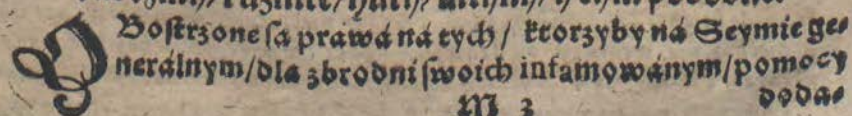 OBoſtrzone ſa prawá ná tych / ktorzyby ná Seymie ge⸗
nerálnym/dla zbrodni ſwoich infamowánym/pomocy
M 3 doda⸗